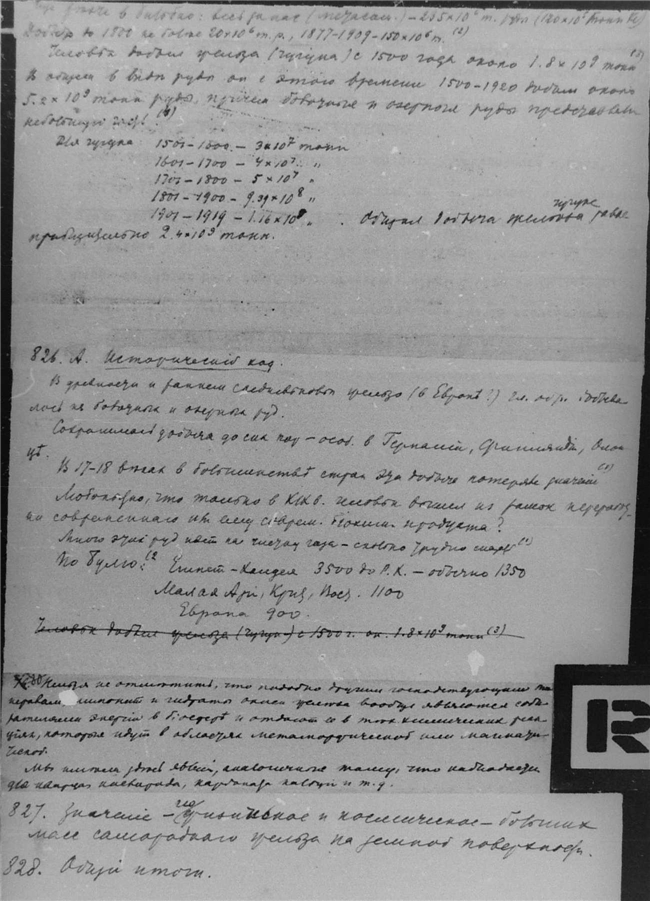 Добыто до 1500 не более 20×10⁶ т., 1877-1909-150×10⁶ т. (2)
Человек добыл железа (чугуна) с 1500 года около 1.8×10⁹ тонн (3)
В общем в виде руды он с этого времени 1500-1920 добыл около
5.2×10⁹ тонн руды, причем болотные и озерные руды представляют
небольшую часть.
Для чугуна: 1501-1600. - 3×10⁷ тонн
1601-1700 - 4×10⁷ "
1701-1800 - 5×10⁷ "
1801-1900 - 9.39×10⁸ "
1901-1919 - 1.16×10⁹ ". Общая добыча железа
чугуна
приблизительно 2.4×10⁹ тонн.
826. А. Исторический ход.
В древности и раннем средневековьи железо (в Европѣ?) гл. обр. добыва
лось из болотных и озерных руд.
Сохранилась добыча до сих пор - особ. в Германіи, Финляндіи, Олон
цѣ.
В 17-18 веках в большинствѣ стран эта добыча потеряла значеніе (1)
Любопытно, что только в XIX в. человек вышел из рамок
современнаго продукта?
Много этих руд
По Булю: (2 Египет - Халдея 3500 до Р.Х. - обычно 1350
Малая Азі, Крит, Восц. 1100
Европа 900.
Человек добыл железа (чугун) с 1500 г. ок. 1.8×10⁹ тонн (3)
Нельзя не отметить, что подобно другим господствующим ми
нералам лимонит и гидраты окиси железа вообще являются соби
рателями энергіи в біосферѣ и отдают ее в тех химических реак
ціях, которые идут в областях метаморфической или магмати
ческой.
Мы имеем здесь явленіе, аналогичное тому, что наблюдаем
для кварца, карбоната кальція и т.д.
827. Значеніе - и космическое - больших
масс самороднаго железа на земной поверхности.
828. Общій итог.
R